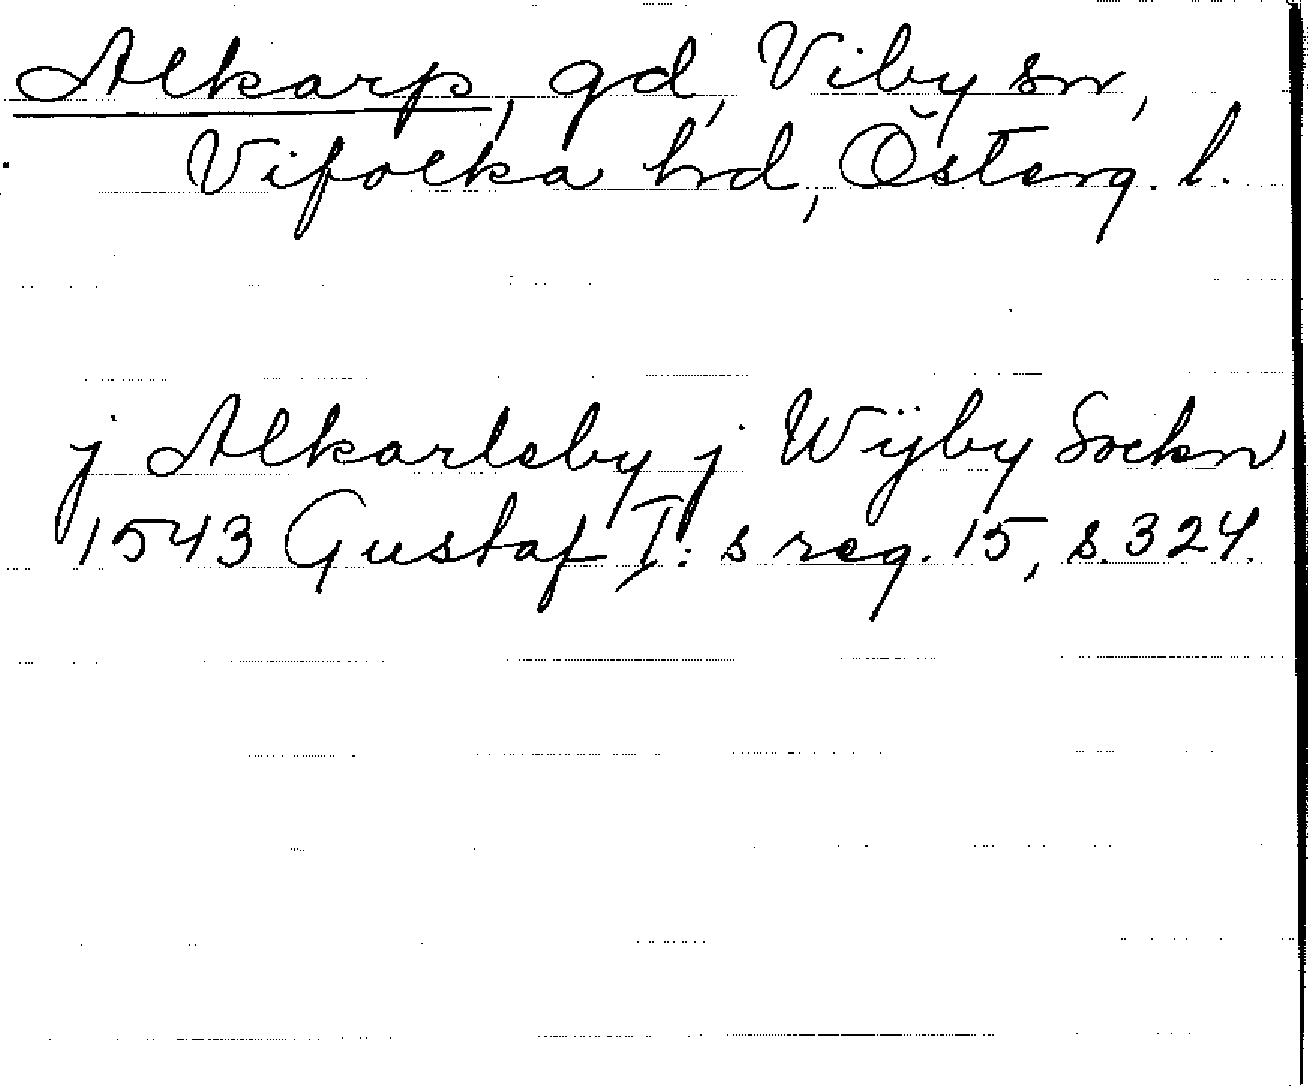 Alkarp, gd, Viby sn,
Vifolka hd, Österg. l.
j Alkarlsby j Wÿby Sockn
1543 Gustaf I:s reg. 15, s. 324.